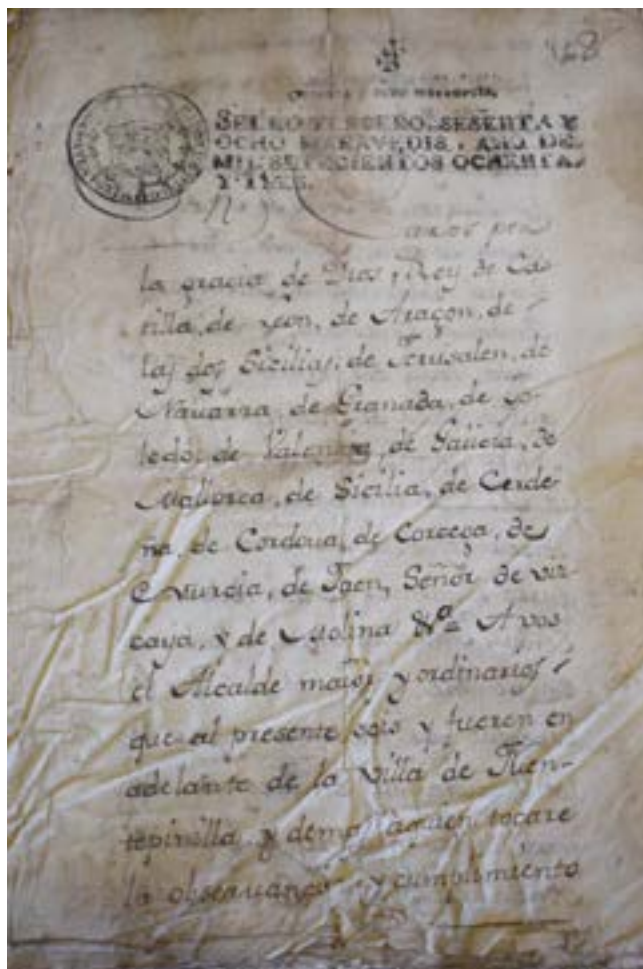 128
SELLO TERCERO, SESENTA Y
OCHO MARAVEDIS, AÑO DE
MIL SETECIENTOS OCHENTA
Y TRES.
por
la gracia de Dios, Rey de Cas
tilla, de Leon, de Aragon, de
las dos Sicilias, de Jerusalen, de
Navarra, de Granada, de To-
ledo, de Valencia, de Galicia, de
Mallorca, de Sicilia, de Cerde-
ña, de Cordova, de Corcega, de
Murcia, de Jaen, Señor de viz
caya, y de Molina &ª A vos
el Alcalde maior y ordinarios
que al presente sois y fueren en
adelante de la villa de Fuen-
tepinilla y demas aquien tocare
la observancia y cumplimiento